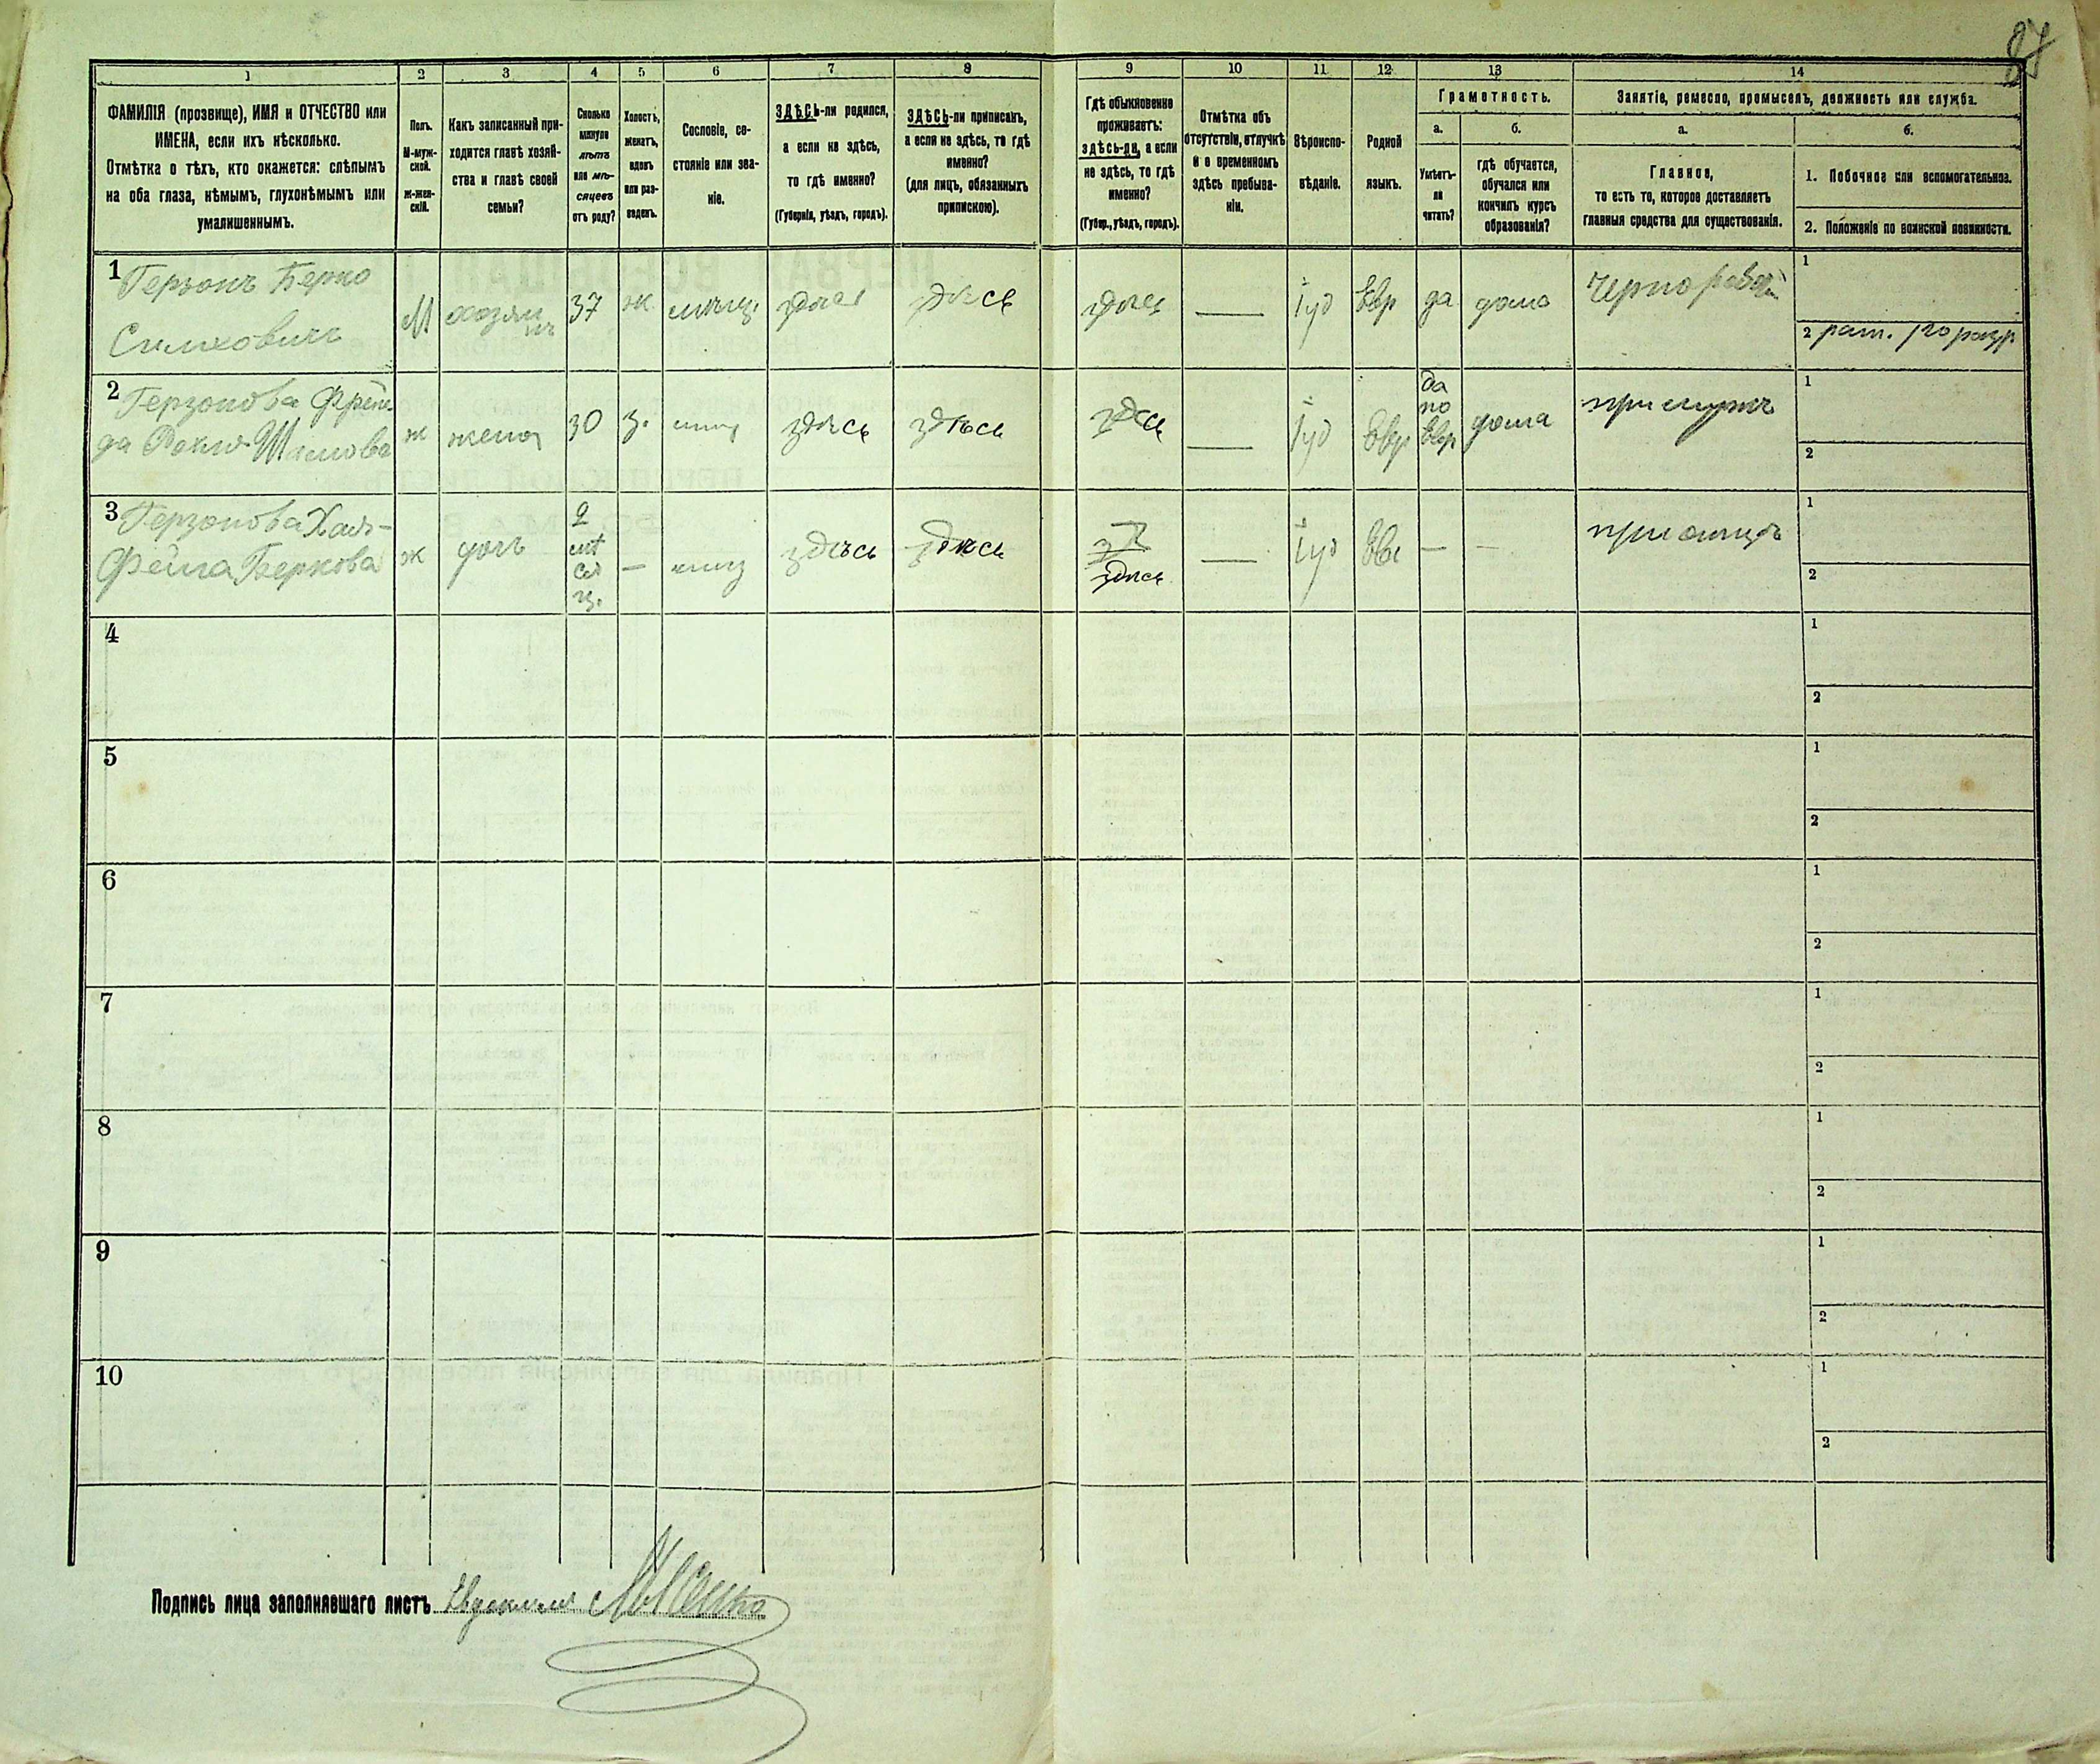 87
1 2 3 4 5 6 7 8 9 10 11 12 13 14
ФАМИЛІЯ (прозвище), ИМЯ и ОТЧЕСТВО или
ИМЕНА, если ихъ нѣсколько.
Отмѣтка о тѣхъ, кто окажется: слѣпымъ
на оба глаза, нѣмымъ, глухонѣмымъ или
умалишеннымъ.
Полъ.
М-муж-
ской.
Ж-жен-
скій.
Какъ записанный при-
ходится главѣ хозяй-
ства и главѣ своей
семьи?
Сколько
минуло
лѣтъ
или мѣ-
сяцевъ
отъ роду?
Холостъ,
женатъ,
вдовъ
или раз-
веденъ.
Сословіе, со-
стояніе или зва-
ніе.
ЗДѢСЬ-ли родился,
а если не здѣсь,
то гдѣ именно?
(Губернія, уѣздъ, городъ).
ЗДѢСЬ-ли приписанъ,
а если не здѣсь, то гдѣ
именно?
(для лицъ, обязанныхъ
припискою).
Гдѣ обыкновенно
проживаетъ:
здѣсь-ли, а если
не здѣсь, то гдѣ
именно?
(Губер., уѣздъ, городъ).
Отмѣтка объ
отсутствіи, отлучкѣ
и о временномъ
здѣсь пребыва-
ніи.
Вѣроиспо-
вѣданіе.
Родной
языкъ.
Грамотность.
а.
Умѣетъ-
ли
читать?
б.
гдѣ обучается,
обучался или
кончилъ курсъ
образованія?
Занятіе, ремесло, промыселъ, должность или служба.
а.
Главное,
то есть то, которое доставляетъ
главныя средства для существованія.
б.
1. Побочное или вспомогательное.
2. Положеніе по воинской повинности.
1
Герзонъ Берко
М
хозяи
нъ
37
ж
мѣщ.
здѣсь
здѣсь
здѣсь
—
Іуд
Евр
да
дома
Чернорабочій
1
2 рат. 1го разр
2
Герзонова Фрей-
да Рохля
ж
жена
30
з.
мѣщ
здѣсь
здѣсь
здѣсь
—
Іуд
Евр
да
по
Евр
дома
при мужѣ
1
2
3
Герзонова Хая-
Фейга Беркова
ж
дочь
2
мѣ
ся
ц.
—
мѣщ
здѣсь
здѣсь
здѣсь
—
Іуд
Евр
—
—
при отцѣ
1
2
4
1
2
5
1
2
6
1
2
7
1
2
8
1
2
9
1
2
10
1
2
Подпись лица заполнявшаго листъ